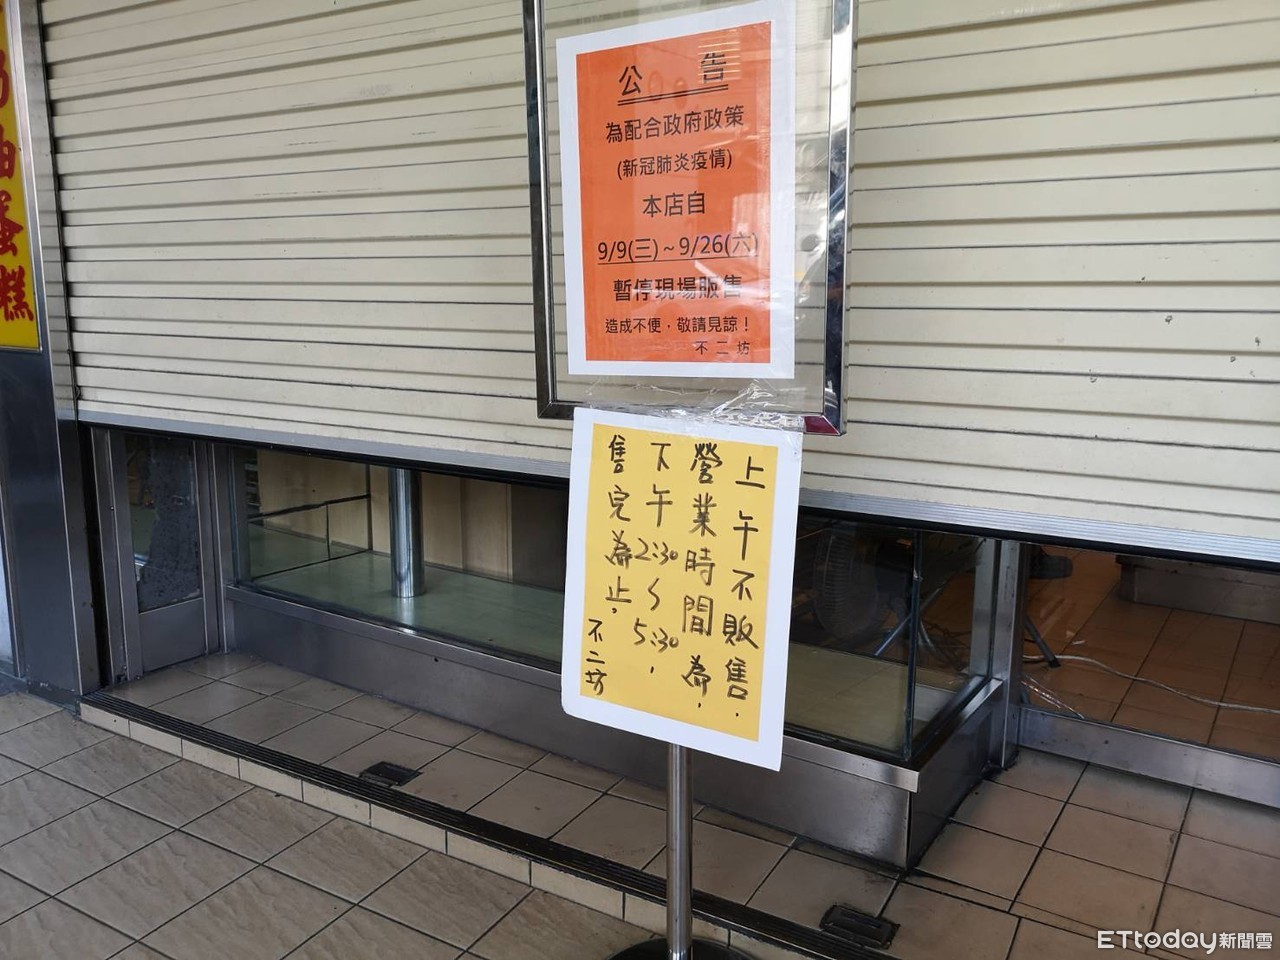 奶油蛋糕
公 告
為配合政府政策
(新冠肺炎疫情)
本店自
9/9(三)~9/26(六)
暫停現場販售
造成不便，敬請見諒！
不二坊
上午不販售.
營業時間為,
下午2:30~5:30,
售完為止,
不二坊
ETtoday新聞雲